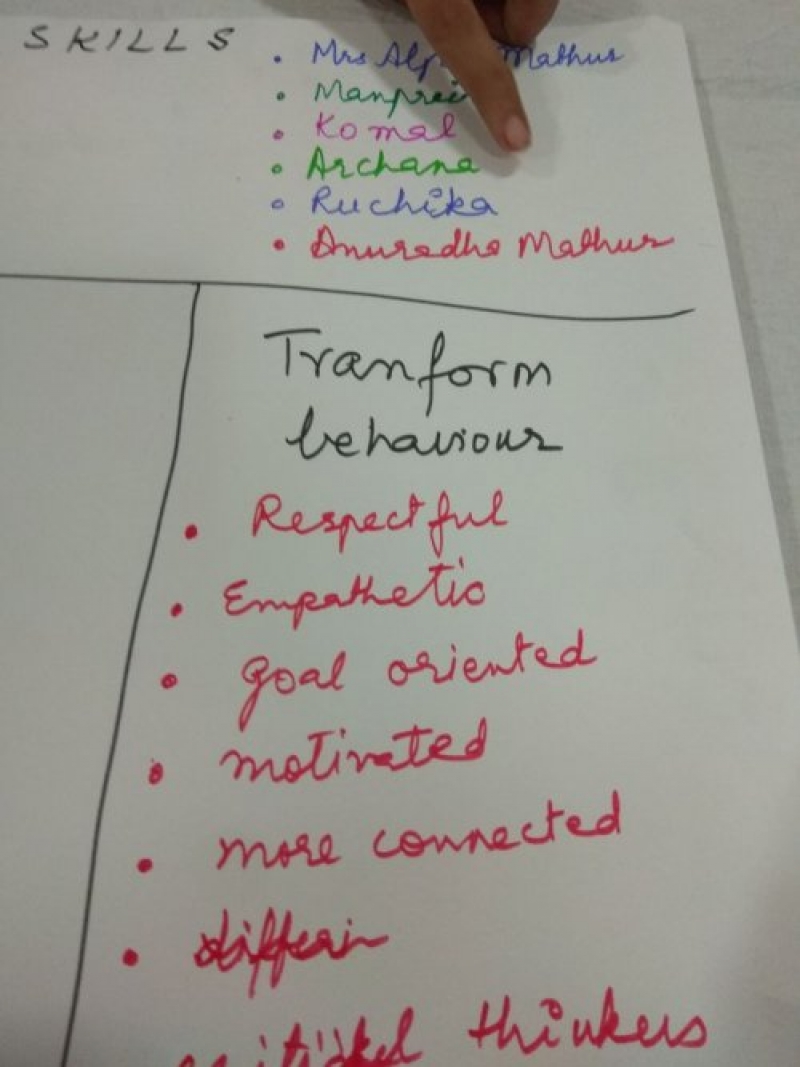 SKILLS
• Mrs Mathur
• Manpreet
• Komal
• Archana
• Ruchika
• Anuradha Mathur
Tranform
behaviour
• Respectful
• Empathetic
• Goal oriented
• motivated
• more connected
thinkers